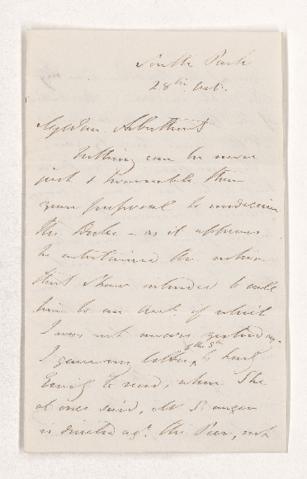 South Park
28th Oct.
My dear Arbuthnot
Nothing can be more
just & honourable than
your proposal to undeceive
the Duke – as it appears
he entertained the notion
that I have intended to call
him to an acct. of which
I was not aware
I gave my letter, to Lady
of the 5th
Emily to read, when She
at once said,
is directed agt. the Peer, not